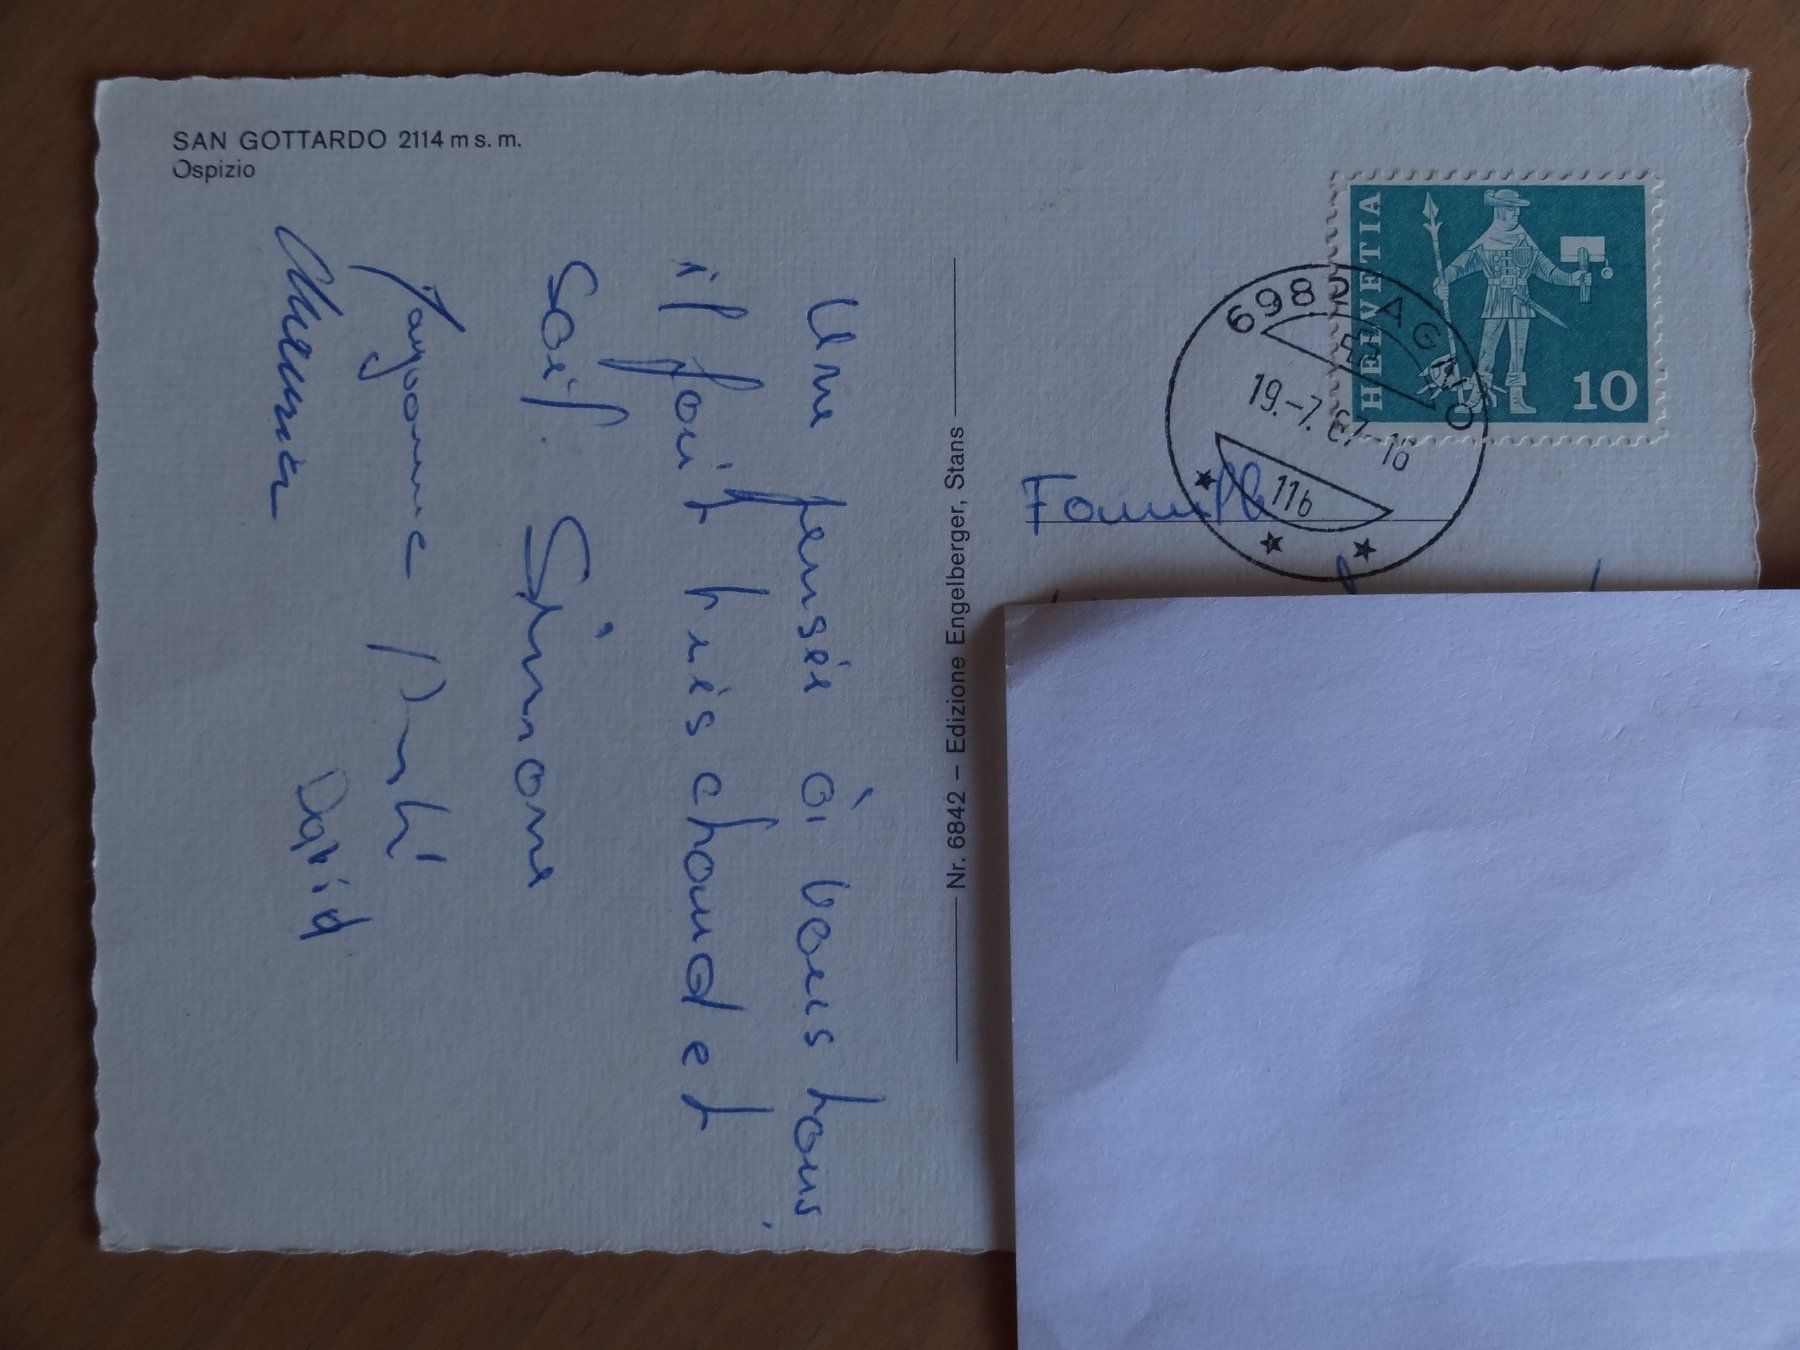 SAN GOTTARDO 2114 m s. m.
Ospizio
Une pensée à vous tous,
il fait très chaud et
soif. Simone
David
Nr. 6842 – Edizione Engelberger, Stans
HELVETIA
10
6982 AGNO
19.-7. 67-16
11b
Famille